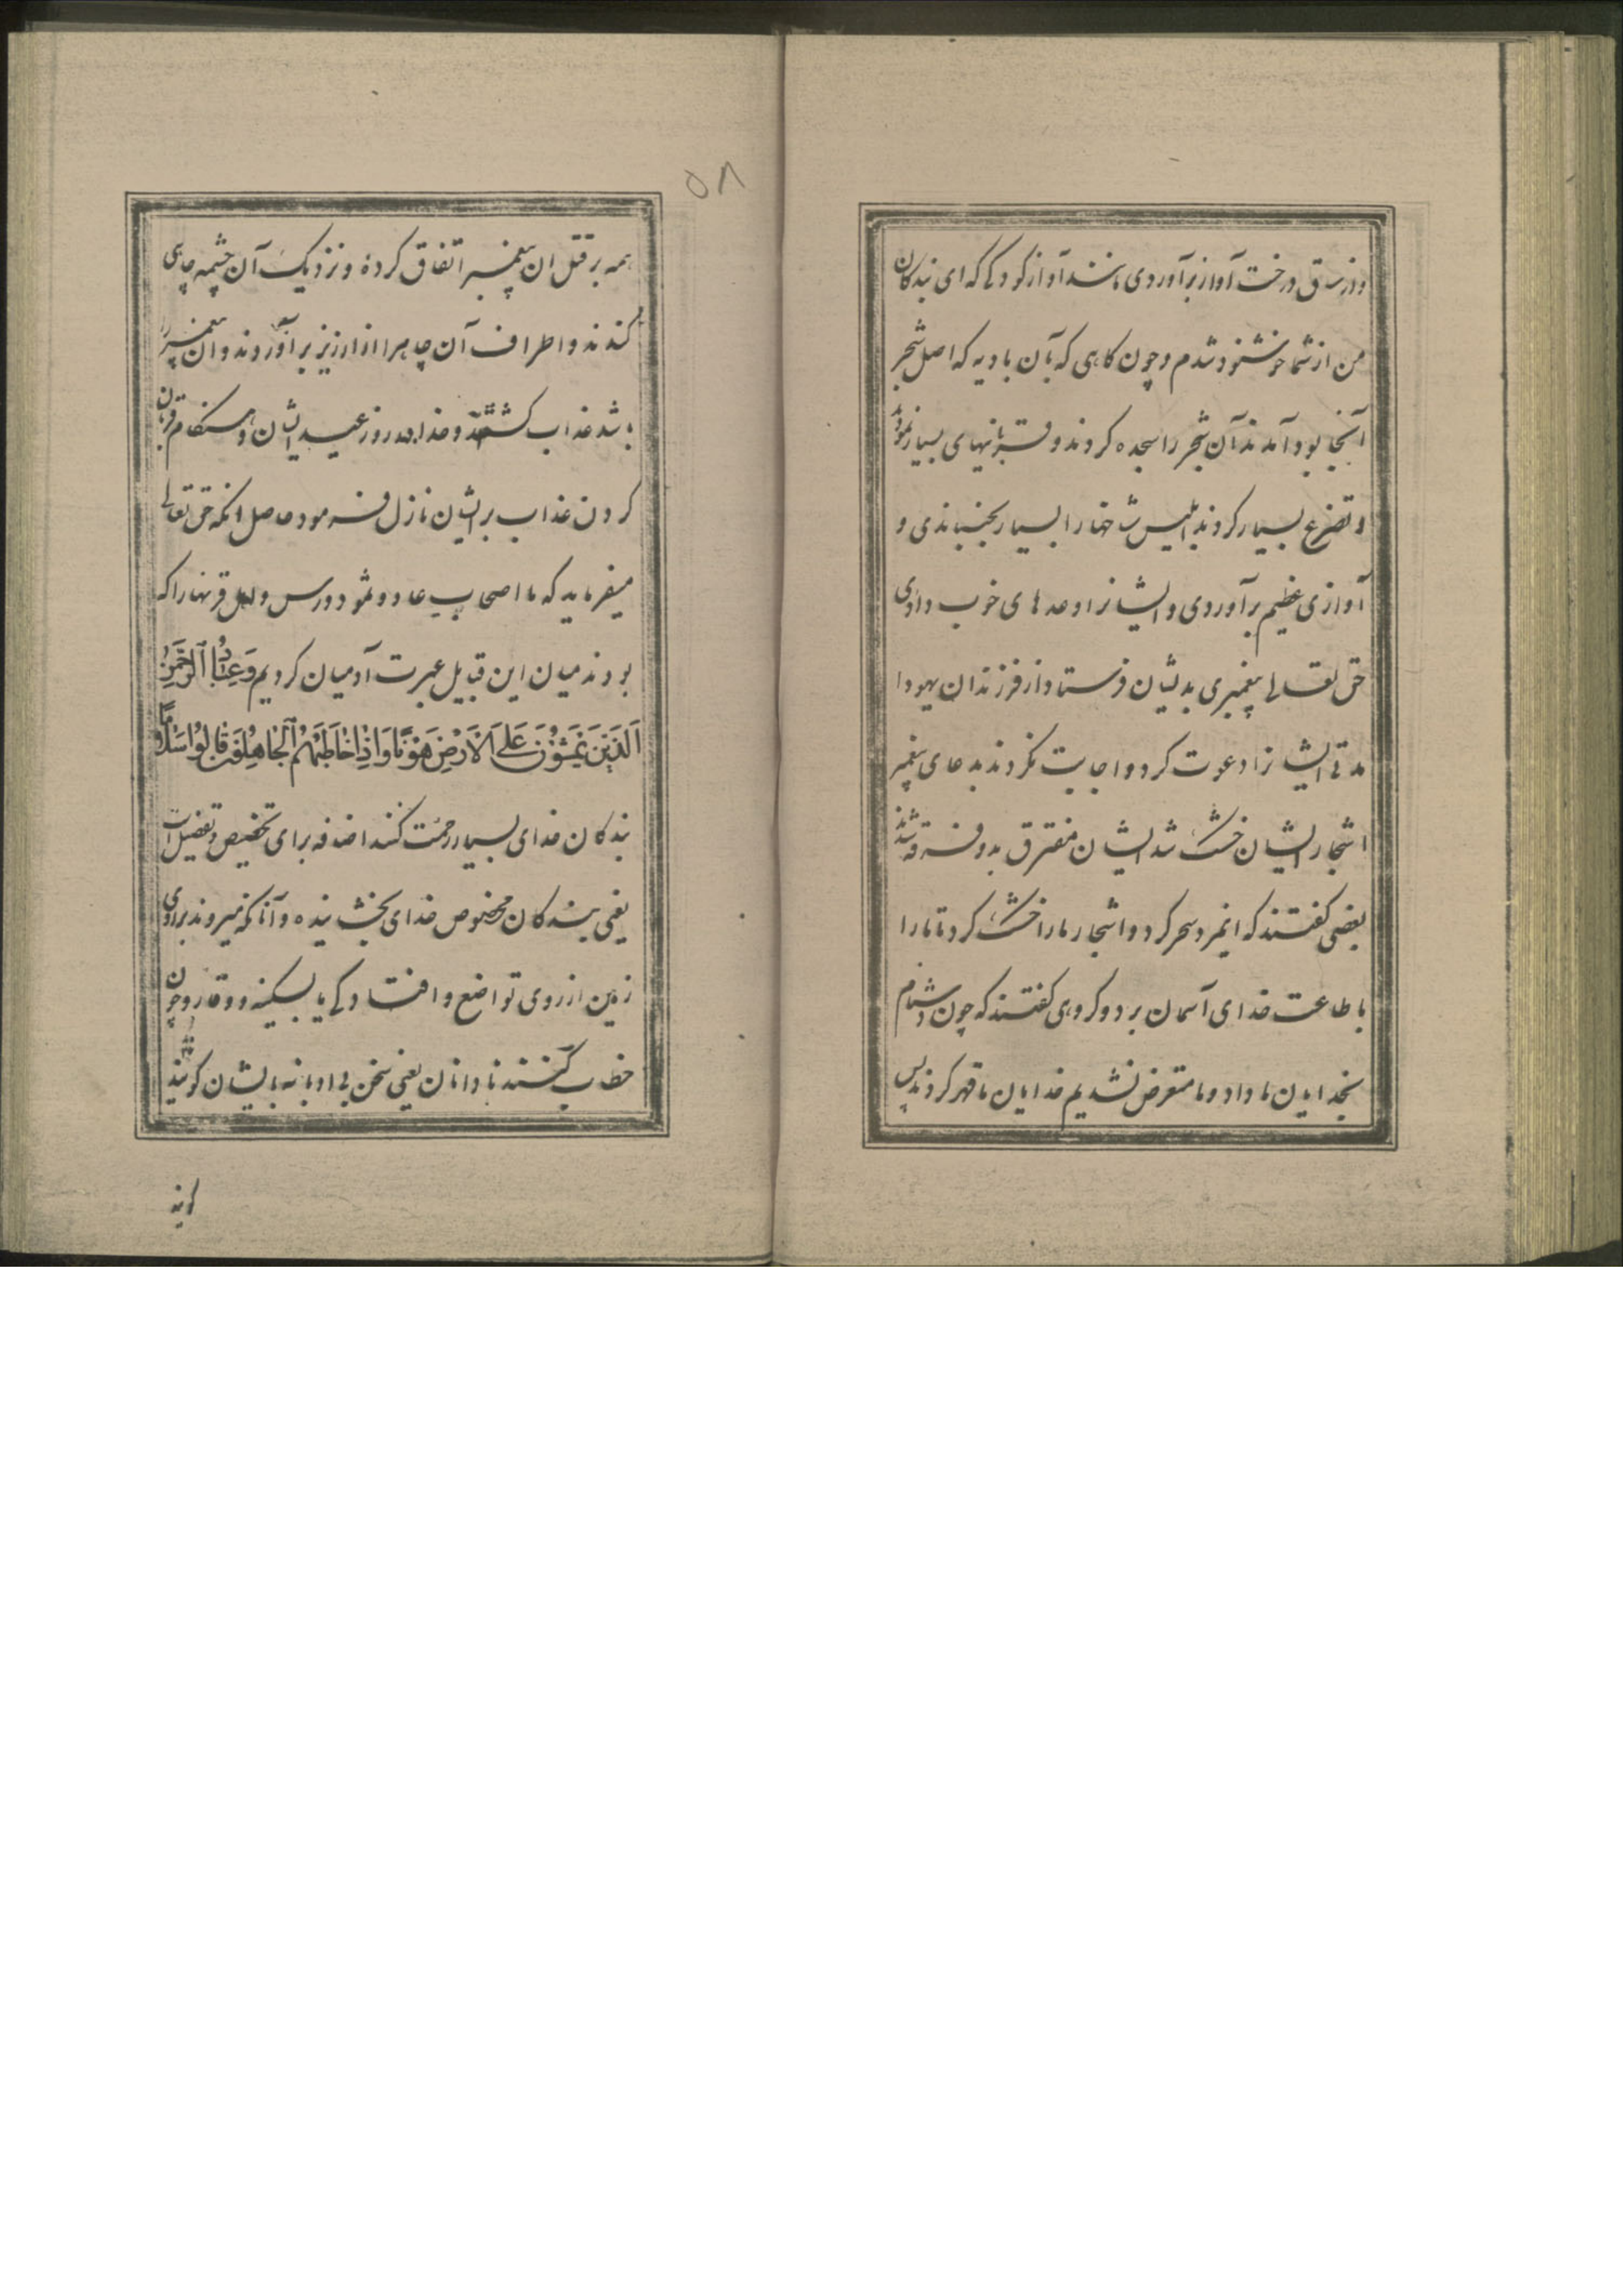 واز ساق درخت آواز برآوردی مانند آواز کودکے که ای بندکان
من از شما خوشنود شدم و چون کاهی که بآن بادیه که اصل شجر
آنجا بود آمدند آن شجر را سجده کردند و قربانیهای بسیار نمود
و تضرع بسیار کردند ابلیس شاخها را بسیار بجنبانیدی و
آوازی عظیم برآوردی و ایشانرا وعدهای خوب دادی
حق تعالی پیغمبری بدیشان فرستاد از فرزندان یهودا
مدتی ایشانرا دعوت کرد و اجابت نکردند بدعای پیغمبر
اشجار ایشان خشک شد ایشان متفرق بدو فرقه شدند
بعضی کفتند که اینمرد سحر کرد و اشجار ما را خشک کرد تا ما را
باطاعت خدای آسمان برد و کروهی کفتند که چون دشنام
بخدایان ما داد و ما متعرض نشدیم خدایان ما قهر کردند پس
۵۸
همه بر قتل ان پیغمبر اتفاق کرده و نزدیک آن چشمه چاهی
کندند و اطراف آن چاهرا از ارزیز برآوردند و ان پیغمبر را
باشد عذاب کشتند و خدا در روز عید ایشان و هنکام قربان
کردن عذاب بر ایشان نازل فرمود حاصل انکه حق تعالی
میفرماید که ما اصحاب عاد و ثمود و رس و اهل قرنها را که
بودند میان این قبایل عبرت آدمیان کردیم وَعِبَادُ الرَّحْمٰنِ
اَلَّذِینَ یَمْشُوْنَ عَلَی الْاَرْضِ هَوْنًا وَاِذَا خَاطَبَهُمُ الْجَاهِلُونَ قَالُوْا سَلَامًا
بندکان خدای بسیار رحمت کننده اضافه برای تخصیص و تفضیل است
یعنی بندکان مخصوص خدای بخشاینده و آنانکه میروند بر روی
زمین از روی تواضع و افتادکے یا بسکینه و وقار و چون
خطاب کنند نادانان یعنی سخن بی ادبانه بایشان کویند